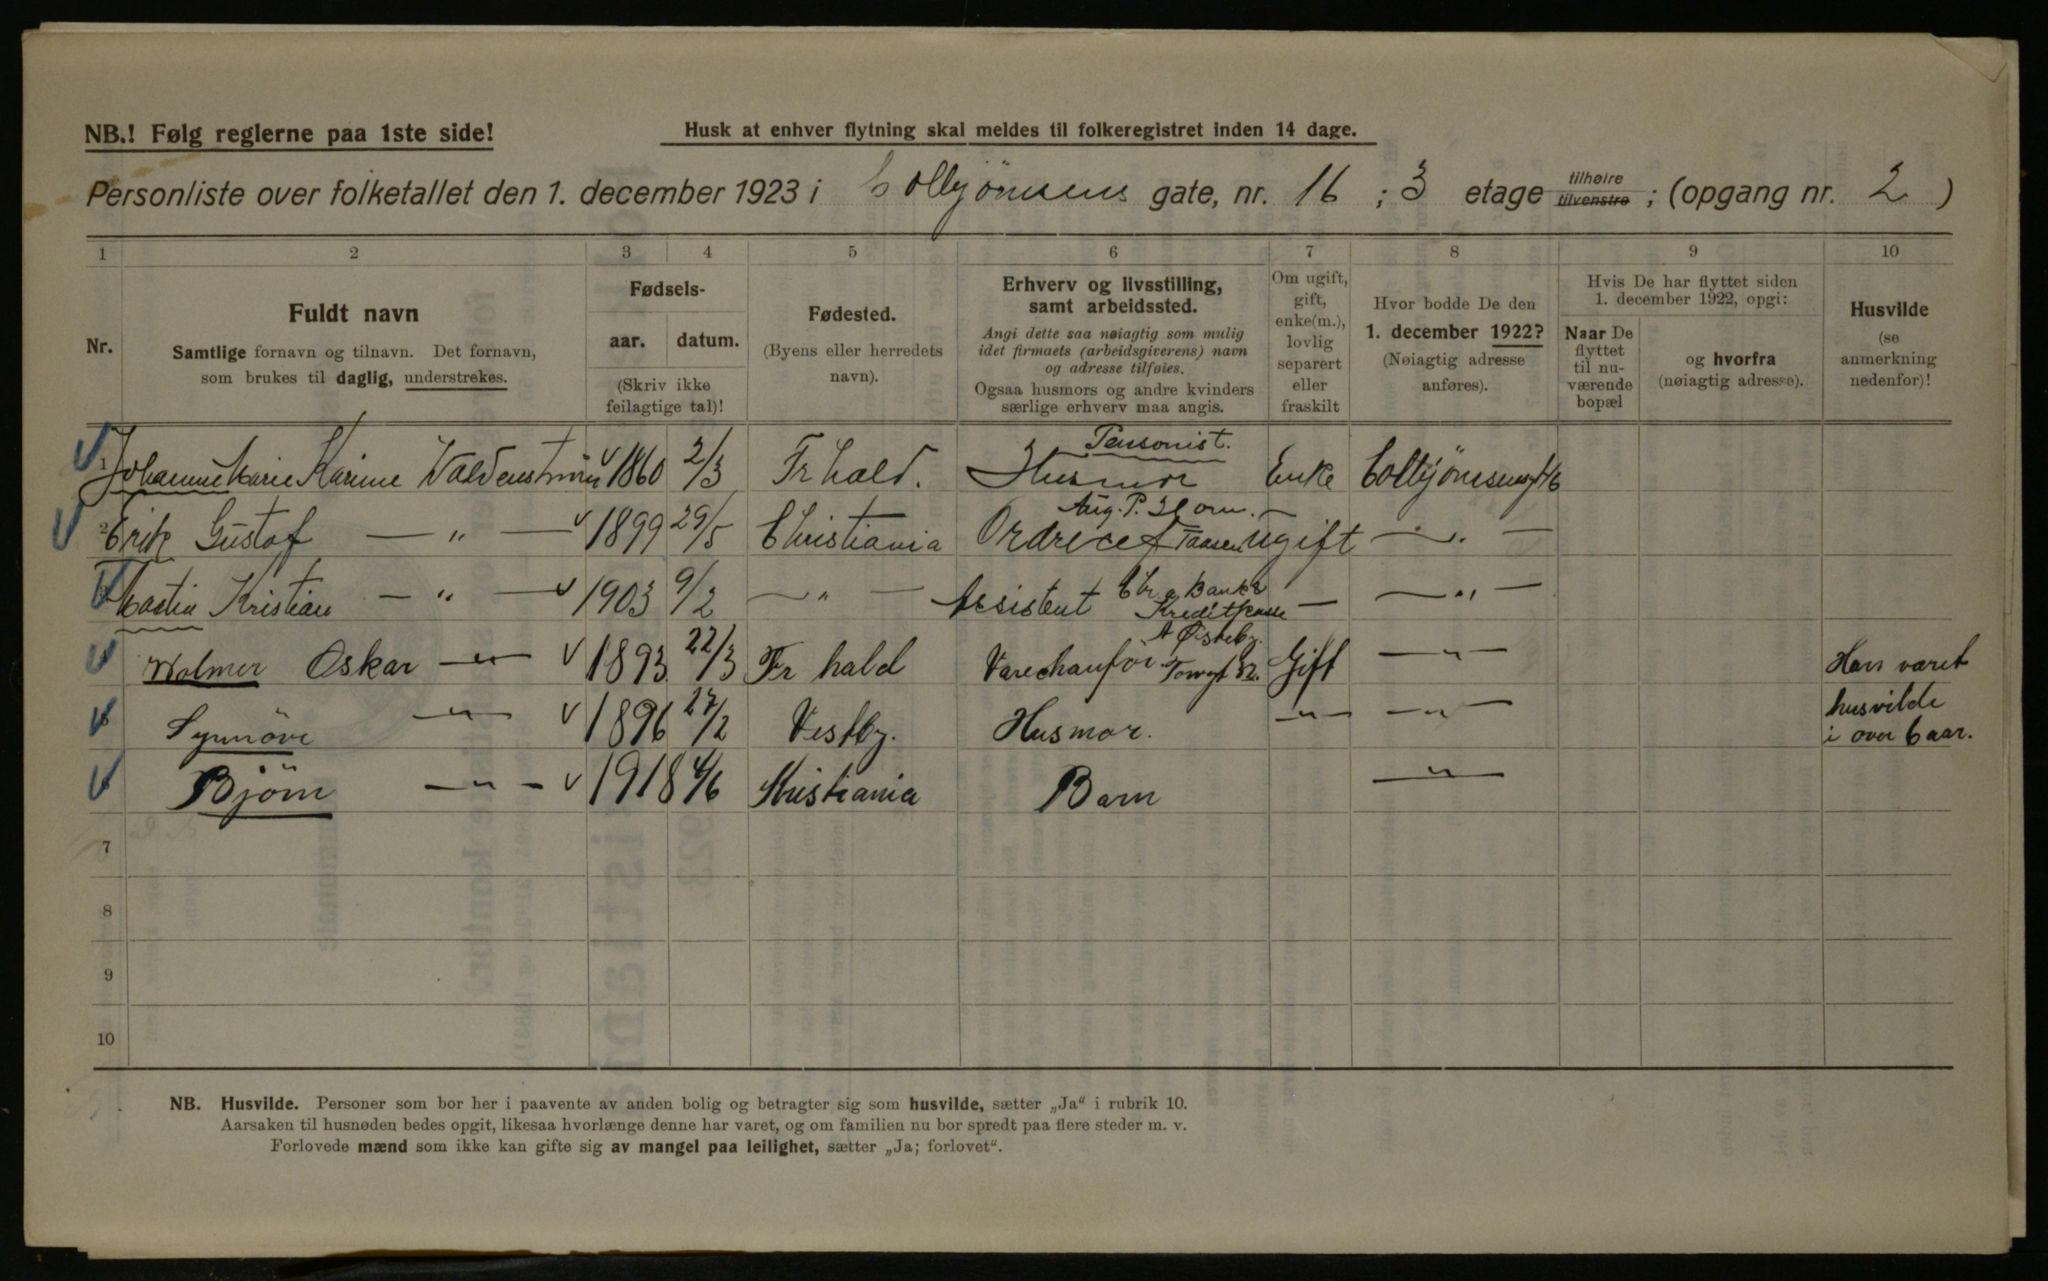 NB.! Følg reglerne paa 1ste side!
Husk at enhver flytning skal meldes til folkeregistret inden 14 dage.
Personliste over folketallet den 1. december 1923 i Colbjörnsens gate, nr. 16 ; 3 etage tilhøire tilvenstre ; (opgang nr. 2 )
1 2 3 4 5 6 7 8 9 10
Nr.
Fuldt navn
Samtlige fornavn og tilnavn. Det fornavn,
som brukes til daglig, understrekes.
Fødsels-
aar. datum.
(Skriv ikke
feilagtige tal)!
Fødested.
(Byens eller herredets
navn).
Erhverv og livsstilling,
samt arbeidssted.
Angi dette saa nøiagtig som mulig
idet firmaets (arbeidsgiverens) navn
og adresse tilføies.
Ogsaa husmors og andre kvinders
særlige erhverv maa angis.
Om ugift,
gift,
enke(m.),
lovlig
separert
eller
fraskilt
Hvor bodde De den
1. december 1922?
(Nøiagtig adresse
anføres).
Hvis De har flyttet siden
1. december 1922, opgi:
Naar De
flyttet
til nu-
værende
bopæl
og hvorfra
(nøiagtig adresse).
Husvilde
(se
anmerkning
nedenfor)!
Pensonist.
1 Johanne Marie Karine Valdenström 1860 2/3 Fr hald. Husmor Enke Colbjörnsensgt 16
Aug. P. Horn.
2 Erik Gustaf — „ — 1899 29/5 Christiania Ordrechef Taasen Ugift — „ —
Kristian — „ — 1903 9/2 — „ — Assistent Chr a Bank & Kreditkasse — — „ —
A Østeby.
Wolmer Oskar — „ — 1893 22/3 Fr hald Varechauför Torvgt 32. Gift — „ — Har været
Synnöve — „ — 1896 27/2 Vestby. Husmor. — „ — — „ — husvilde
i over 6 aar.
Björn — „ — 1918 4/6 Kristiania Barn — „ —
7
8
9
10
NB. Husvilde. Personer som bor her i paavente av anden bolig og betragter sig som husvilde, sætter „Ja“ i rubrik 10.
Aarsaken til husnøden bedes opgit, likesaa hvorlænge denne har varet, og om familien nu bor spredt paa flere steder m. v.
Forlovede mænd som ikke kan gifte sig av mangel paa leilighet, sætter „Ja; forlovet“.